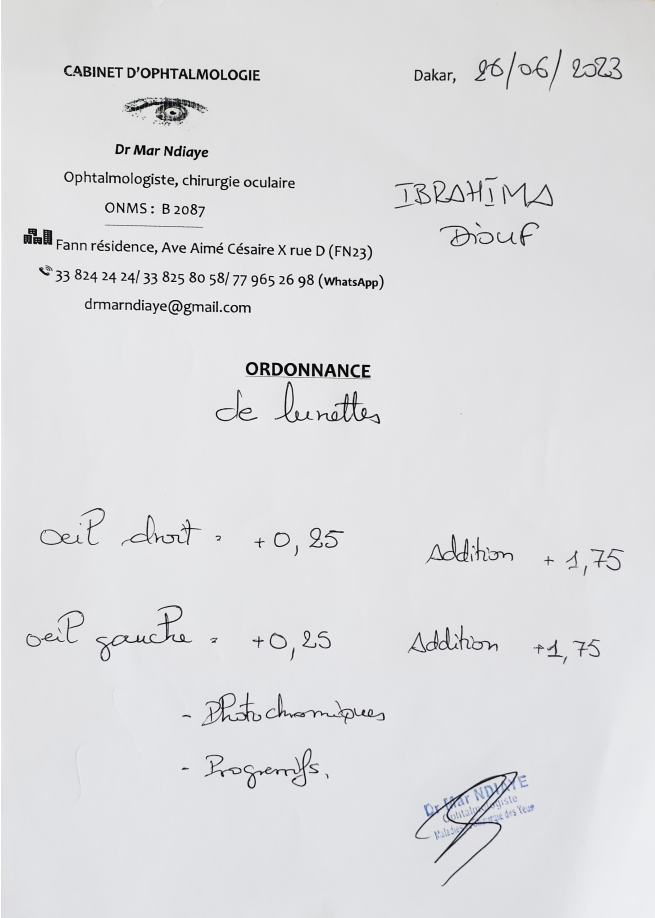 CABINET D'OPHTALMOLOGIE
Dakar, 26/06/2023
Dr Mar Ndiaye
Ophtalmologiste, chirurgie oculaire
ONMS : B 2087
IBRAHIMA
Diouf
Fann résidence, Ave Aimé Césaire X rue D (FN23)
33 824 24 24/ 33 825 80 58/ 77 965 26 98 (WhatsApp)
drmarndiaye@gmail.com
ORDONNANCE
de lunettes
oeil droit = +0,25 Addition +1,75
oeil gauche = +0,25 Addition +1,75
- Photochromiques
- Progressifs.
Dr Mar NDIAYE
Ophtalmologiste
Maladies Chirurgie des Yeux